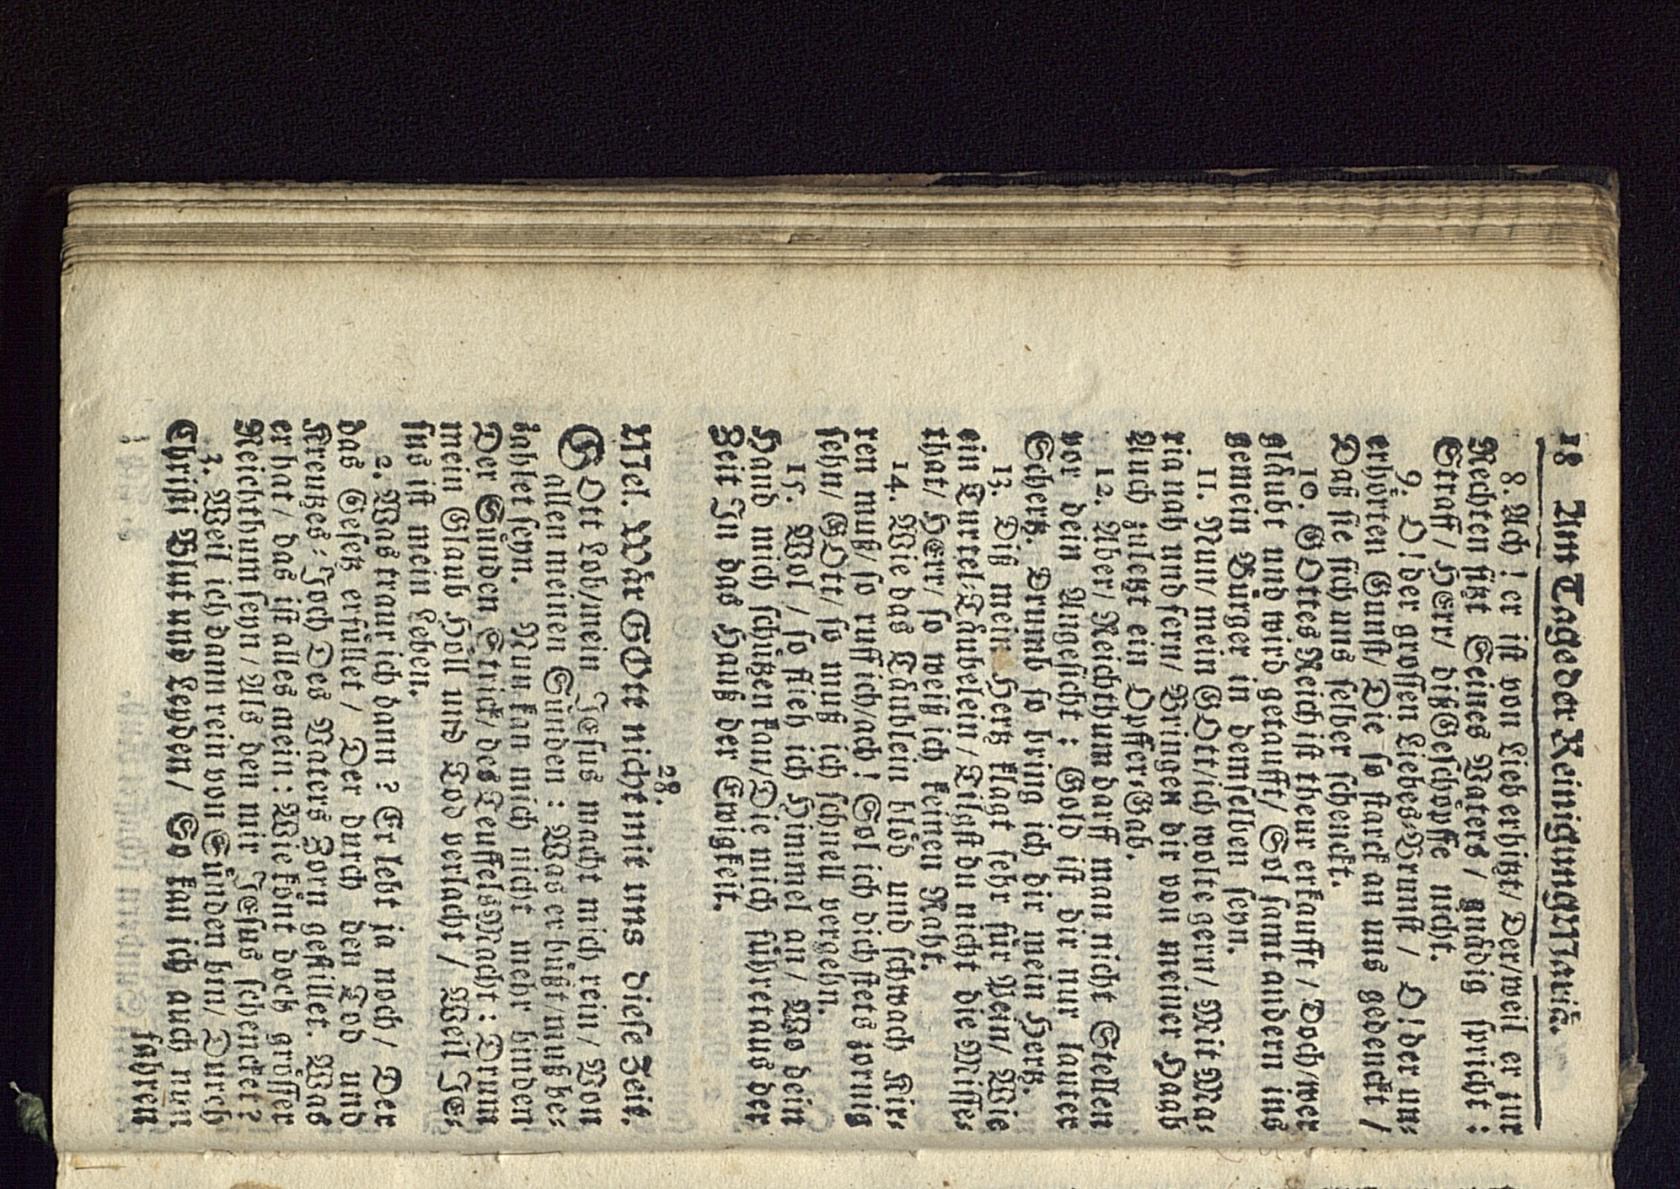 18 Am Tage der Reinigung Mariä.
8. Ach! er ist von Lieb erhitzt/ Der/weil er zur
Rechten sitzt Seines Vaters / gnädig spricht:
Straff/ HErr/ diß Geschöpffe nicht.
9. O! der grossen Liebes-Brunst / O! der un-
erhörten Gunst/ Die so starck an uns gedenckt /
Daß sie sich uns selber schenckt.
10. GOttes Reich ist theur erkaufft / Doch/wer
gläubt und wird getaufft/ Sol samt andern ins
gemein Bürger in demselben seyn.
11. Nun/ mein GOtt/ich wolte gern/ Mit Ma-
ria nah und fern/ Bringen dir von meiner Haab
Auch zuletzt ein Opffer-Gab.
12. Aber/ Reichthum darff man nicht Stellen
vor dein Angesicht : Gold ist dir nur lauter
Schertz. Drumb so bring ich dir mein Hertz.
13. Diß mein Hertz klagt sehr für Pein/ Wie
ein Turtel-Täubelein/ Läst du nicht die Misse-
that/ HErr/ so weiß ich keinen Raht.
14. Wie das Täublein blöd und schwach Kir-
ren muß/ so ruff ich/ach! Sol ich dich stets zornig
sehn/ GOtt/ so muß ich schnell vergehn.
15. Wol / so flieh ich Himmel an / Wo dein
Hand mich schützen kan/Die mich führet aus der
Zeit In das Hauß der Ewigkeit.
28.
Mel. Wär GOtt nicht mit uns diese Zeit.
GOtt Lob/mein JEsus macht mich rein/ Von
allen meinen Sünden : Was er büßt/muß be-
zahlet seyn. Nun kan mich nicht mehr binden
Der Sünden Strick/ des Teuffels Macht : Drum
mein Glaub Höll und Tod verlacht / Weil JE-
sus ist mein Leben.
2. Was traur ich dann ? Er lebt ja noch/ Der
das Gesetz erfüllet / Der durch den Tod und
Kreutzes-Joch Des Vaters Zorn gestillet. Was
er hat / das ist alles mein : Wie könt doch grösser
Reichthum seyn / Als den mir JEsus schencket?
3. Weil ich dann rein von Sünden bin/ Durch
Christi Blut und Leyden/ So kan ich auch nun
fahren